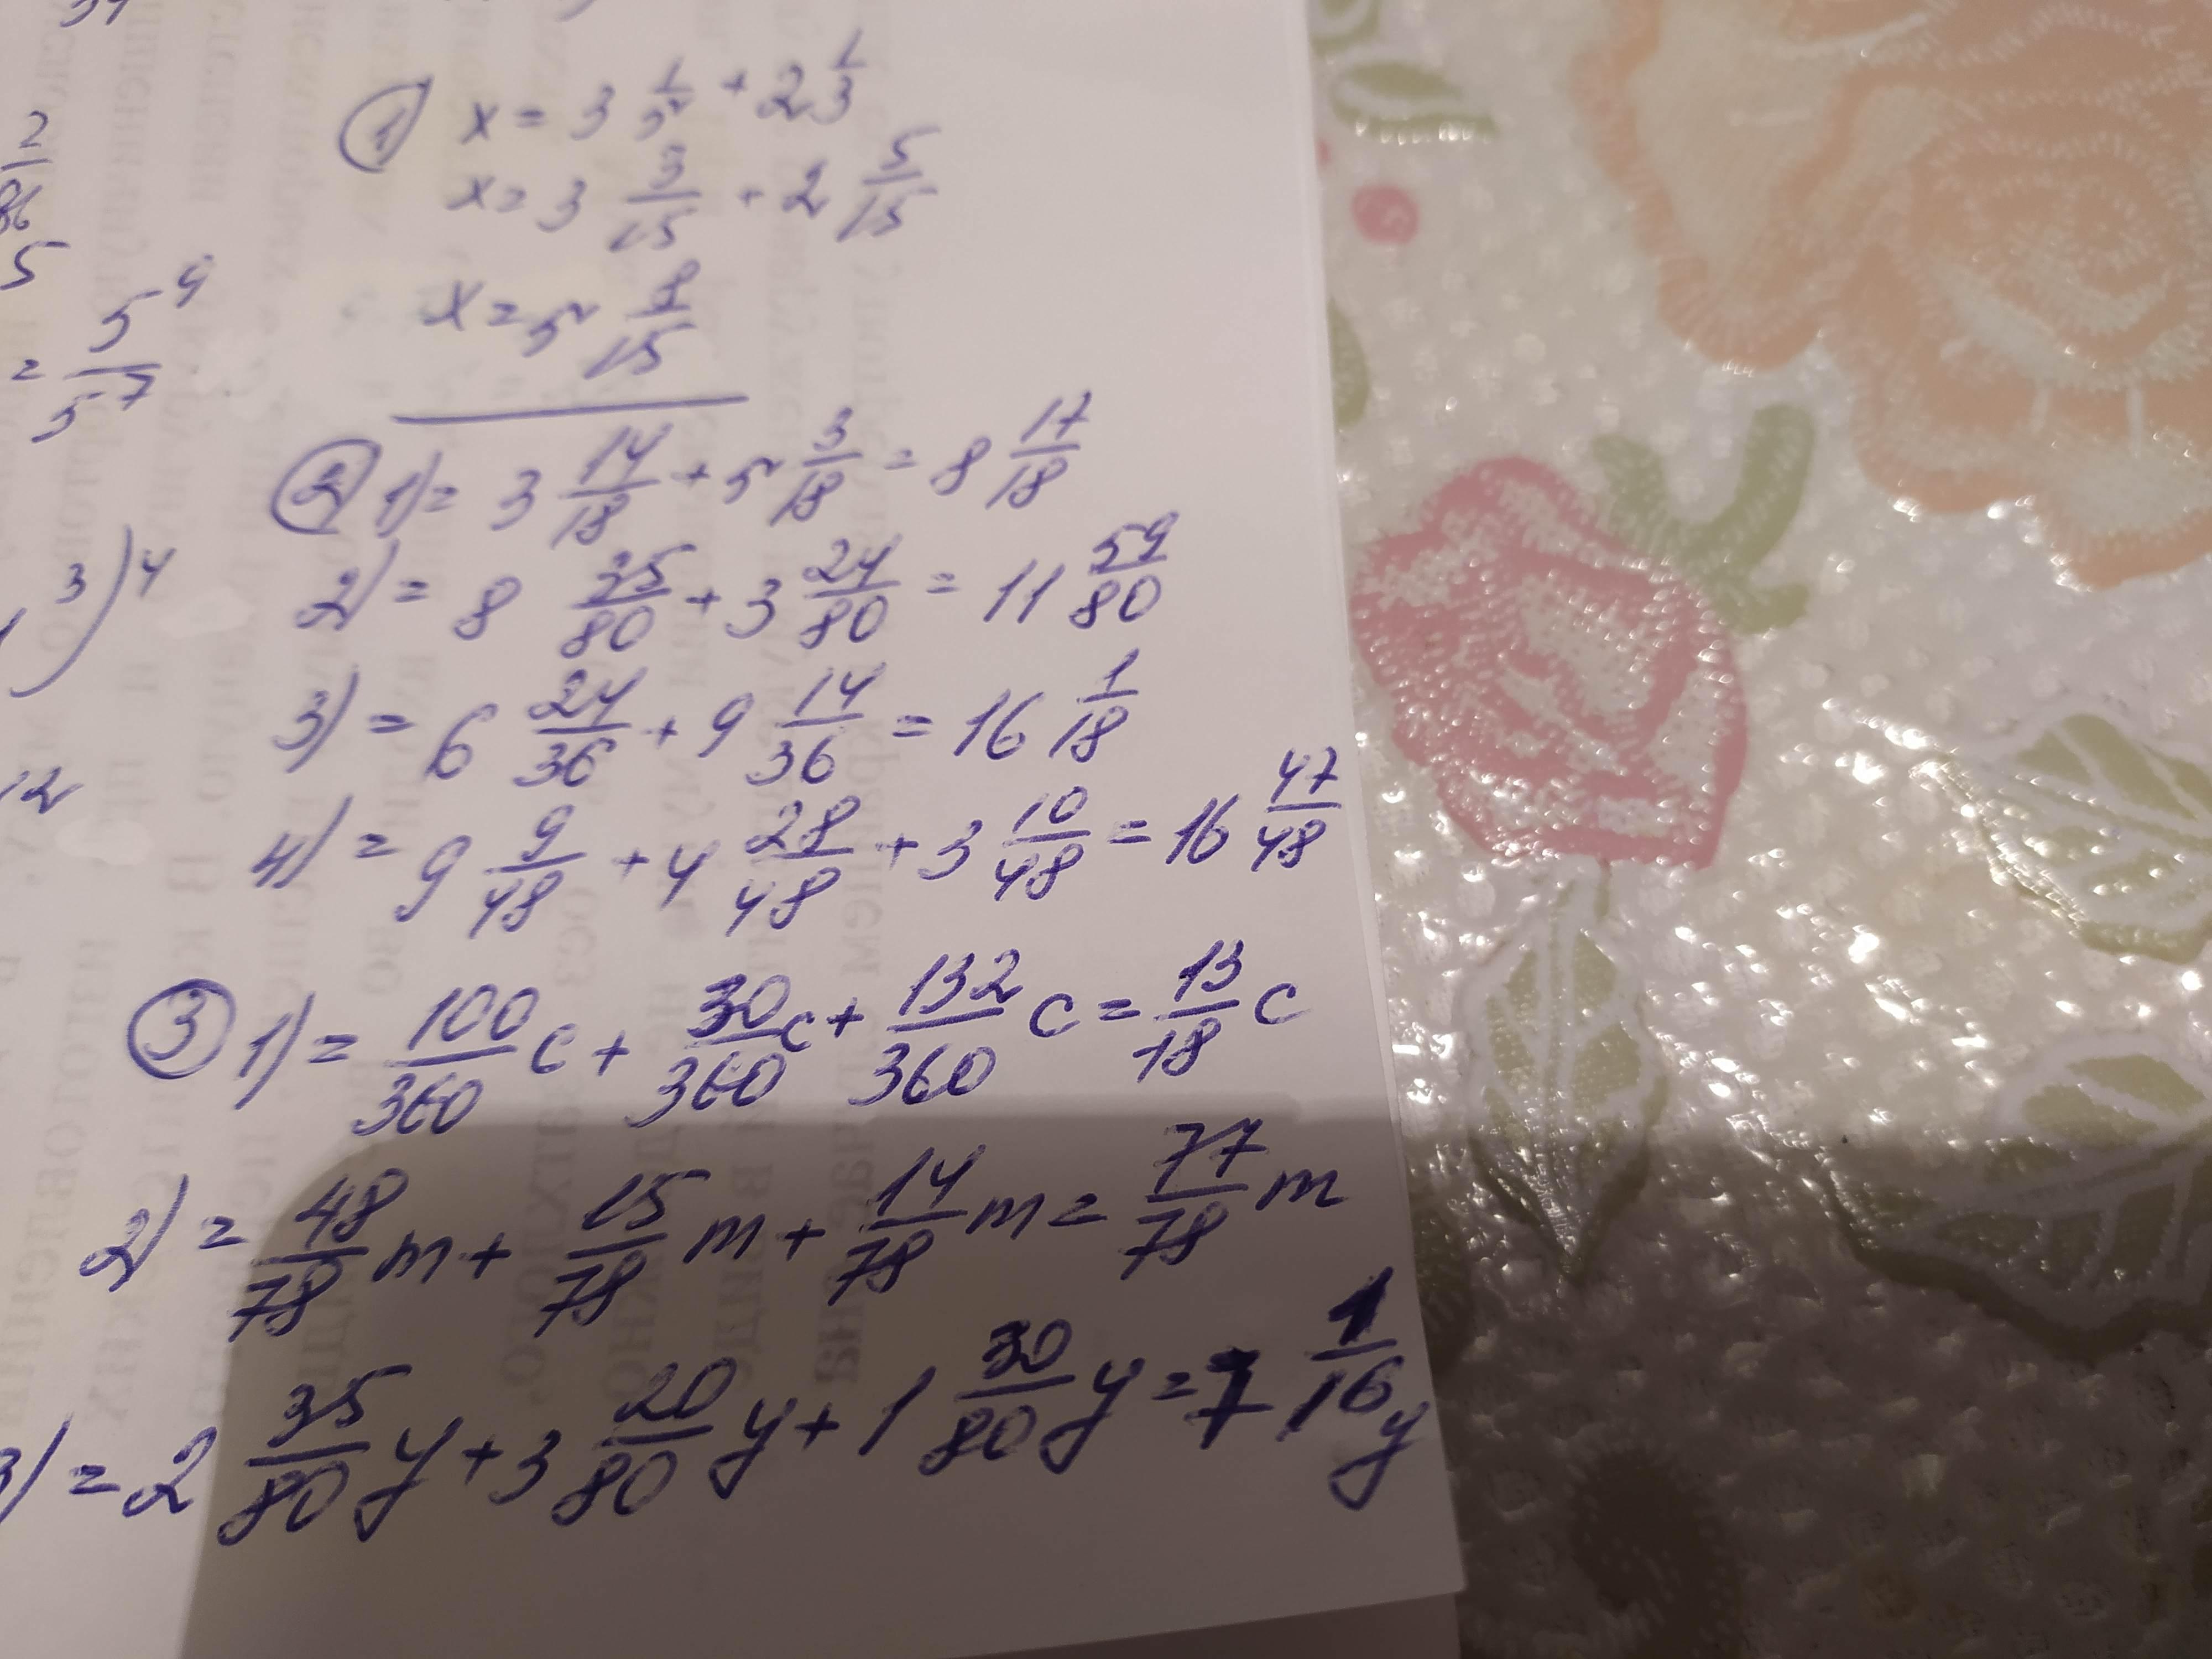 ① x = 3 1/5 + 2 1/3
x = 3 3/15 + 2 5/15
x = 5 8/15
② 1) = 3 14/18 + 5 3/18 = 8 17/18
2) = 8 35/80 + 3 24/80 = 11 59/80
3) = 6 24/36 + 9 14/36 = 16 1/18
4) = 9 9/48 + 4 28/48 + 3 10/48 = 16 47/48
③ 1) = 100/360 c + 30/360 c + 132/360 c = 13/18 c
2) = 48/78 m + 15/78 m + 14/78 m = 77/78 m
3) = 2 35/80 y + 3 20/80 y + 1 30/80 y = 7 1/16 y
2/86
5
= 5^9/5^7
3)^4
12